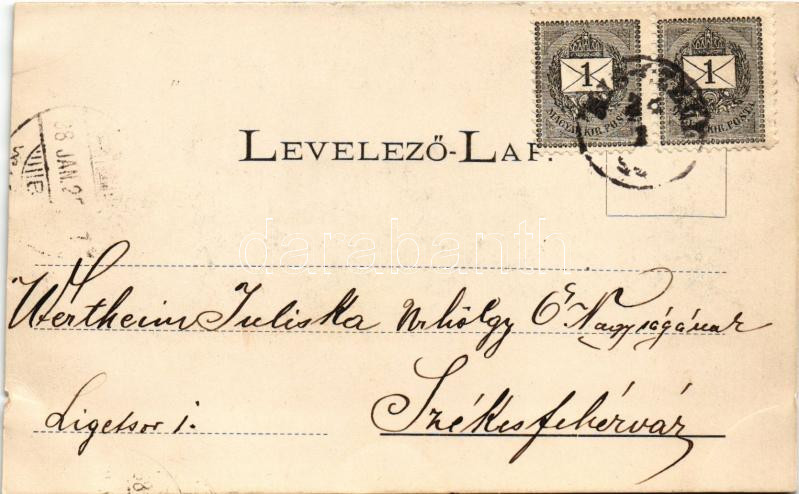 1 1
MAGYAR KIR. POSTA KIR. POSTA
LEVELEZŐ-LAP.
98 JAN. 2
darabanth
Wertheim Juliska Urhölgy Ő Nagyságának
Ligetsor 1.
Székesfehérvár